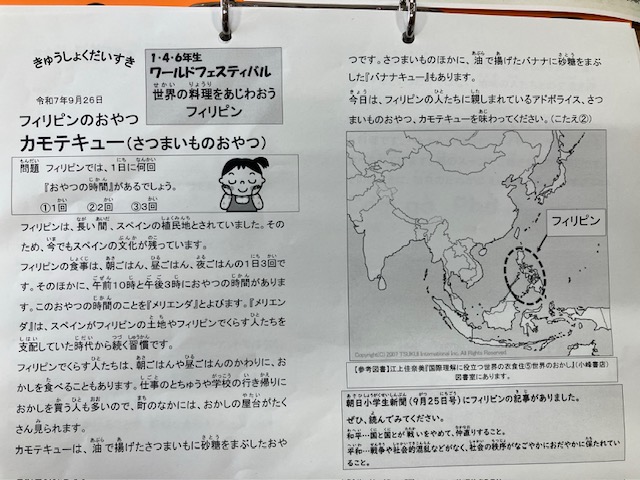 きゅうしょくだいすき
1・4・6年生
ワールドフェスティバル
世界の料理をあじわおう
フィリピン
令和7年9月26日
フィリピンのおやつ
カモテキュー(さつまいものおやつ)
問題 フィリピンでは、1日に何回
『おやつの時間』があるでしょう。
①1回 ②2回 ③3回
フィリピンは、長い間、スペインの植民地とされていました。そ
のため、今でもスペインの文化が残っています。
フィリピンの食事は、朝ごはん、昼ごはん、夜ごはんの1日3回で
す。そのほかに、午前10時と午後3時におやつの時間がありま
す。このおやつの時間のことを『メリエンダ』とよびます。『メリエン
ダ』は、スペインがフィリピンの土地やフィリピンでくらす人たちを
支配していた時代から続く習慣です。
フィリピンでくらす人たちは、朝ごはんや昼ごはんのかわりに、お
かしを食べることもあります。仕事のとちゅうや学校の行き帰りに
おかしを買う人も多いので、町のなかには、おかしの屋台がたく
さん見られます。
カモテキューは、油で揚げたさつまいもに砂糖をまぶしたおや
つです。さつまいものほかに、油で揚げたバナナに砂糖をまぶ
した『バナナキュー』もあります。
今日は、フィリピンの人たちに親しまれているアドボライス、さつ
まいものおやつ、カモテキューを味わってください。(こたえ②)
フィリピン
Copyright(C) 2007 TSUKUI International Inc. All Rights Reserved.
【参考図書】江上佳奈美『国際理解に役立つ世界の衣食住⑤世界のおかし』(小峰書店)
図書室にあります。
朝日小学生新聞(9月25日号)にフィリピンの記事がありました。
ぜひ、読んでみてください。
和平…国と国とが戦いをやめて、仲直りすること。
平和…戦争や社会的混乱などがなく、社会の秩序がなごやかにおだやかに保たれてい
ること。